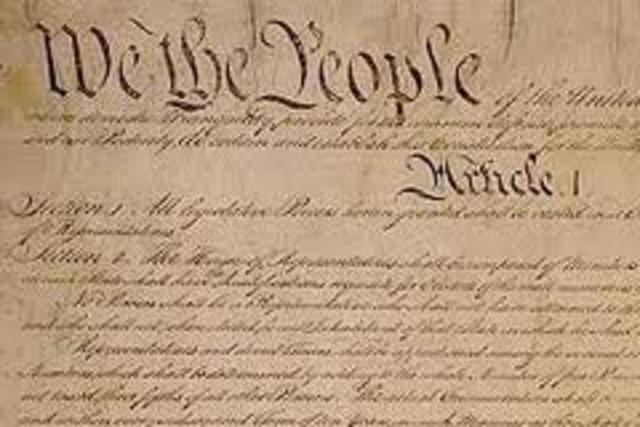 We the People of the United
insure domestic Tranquility, provide for the common defence, promote
and our Posterity, do ordain and establish this Constitution for the
Article. I
Section. 1. All legislative Powers herein granted shall be vested in a
of Representatives.
Section. 2. The House of Representatives shall be composed of Members
in each State shall have Qualifications requisite for Electors of the most numerous
No Person shall be a Representative who shall not have attained to the
and who shall not, when elected, be an Inhabitant of that State in which he shall
Representatives and direct Taxes shall be apportioned among the several
Numbers, which shall be determined by adding to the whole Number of free
not taxed, three fifths of all other Persons. The actual Enumeration shall
and within every subsequent Term of ten Years, in such Manner as